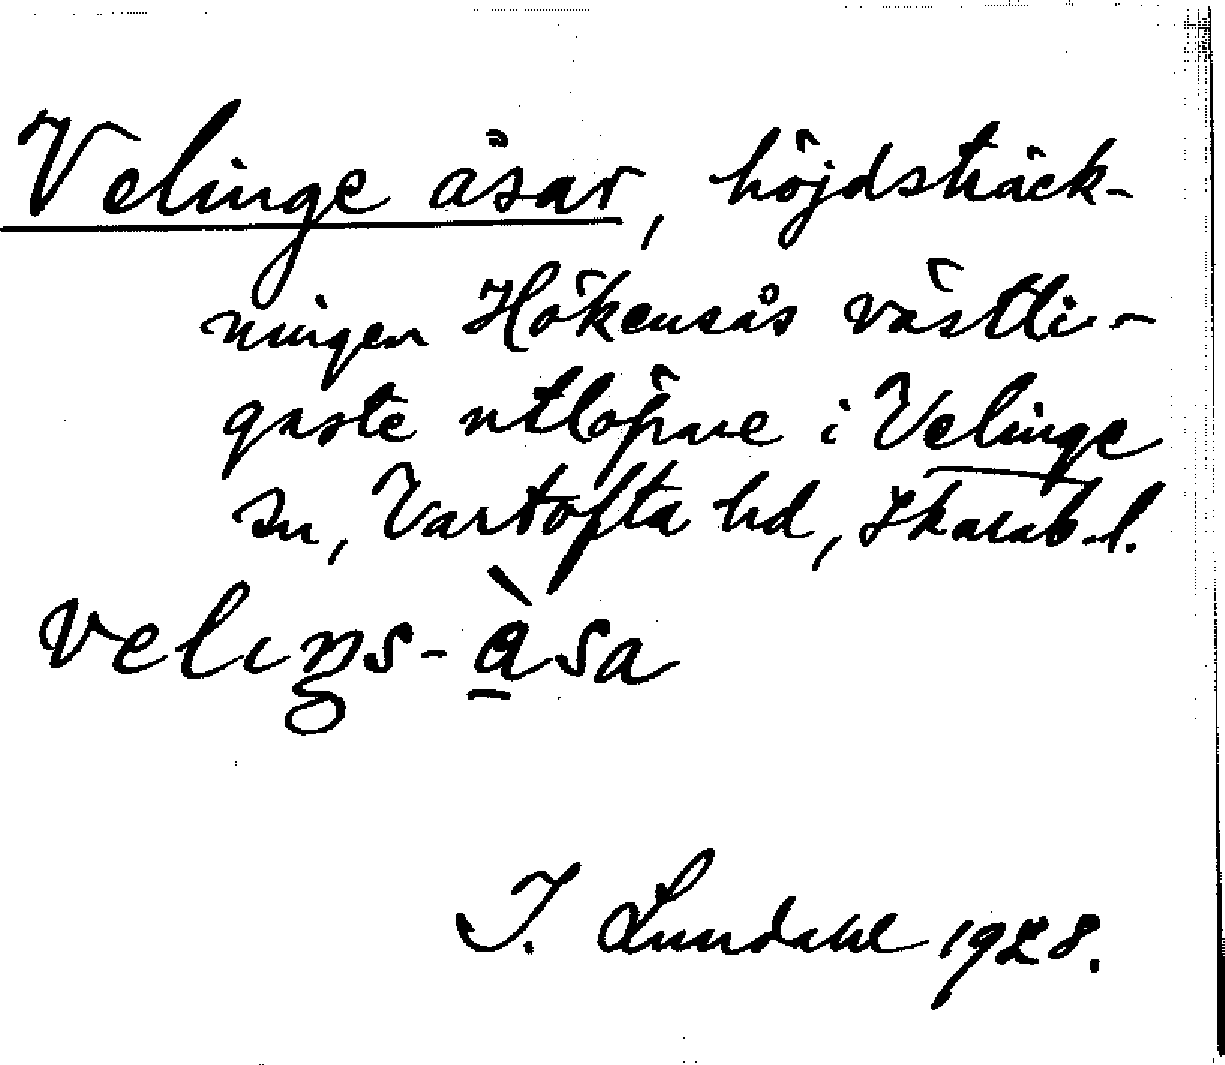 Velinge åsar, höjdsträck-
ningen Hökensås västli-
gaste utlöpare i Velinge
sn, Vartofta hd, Skarab. l.
velıŋs-å̀sa
I. Lundahl 1928.